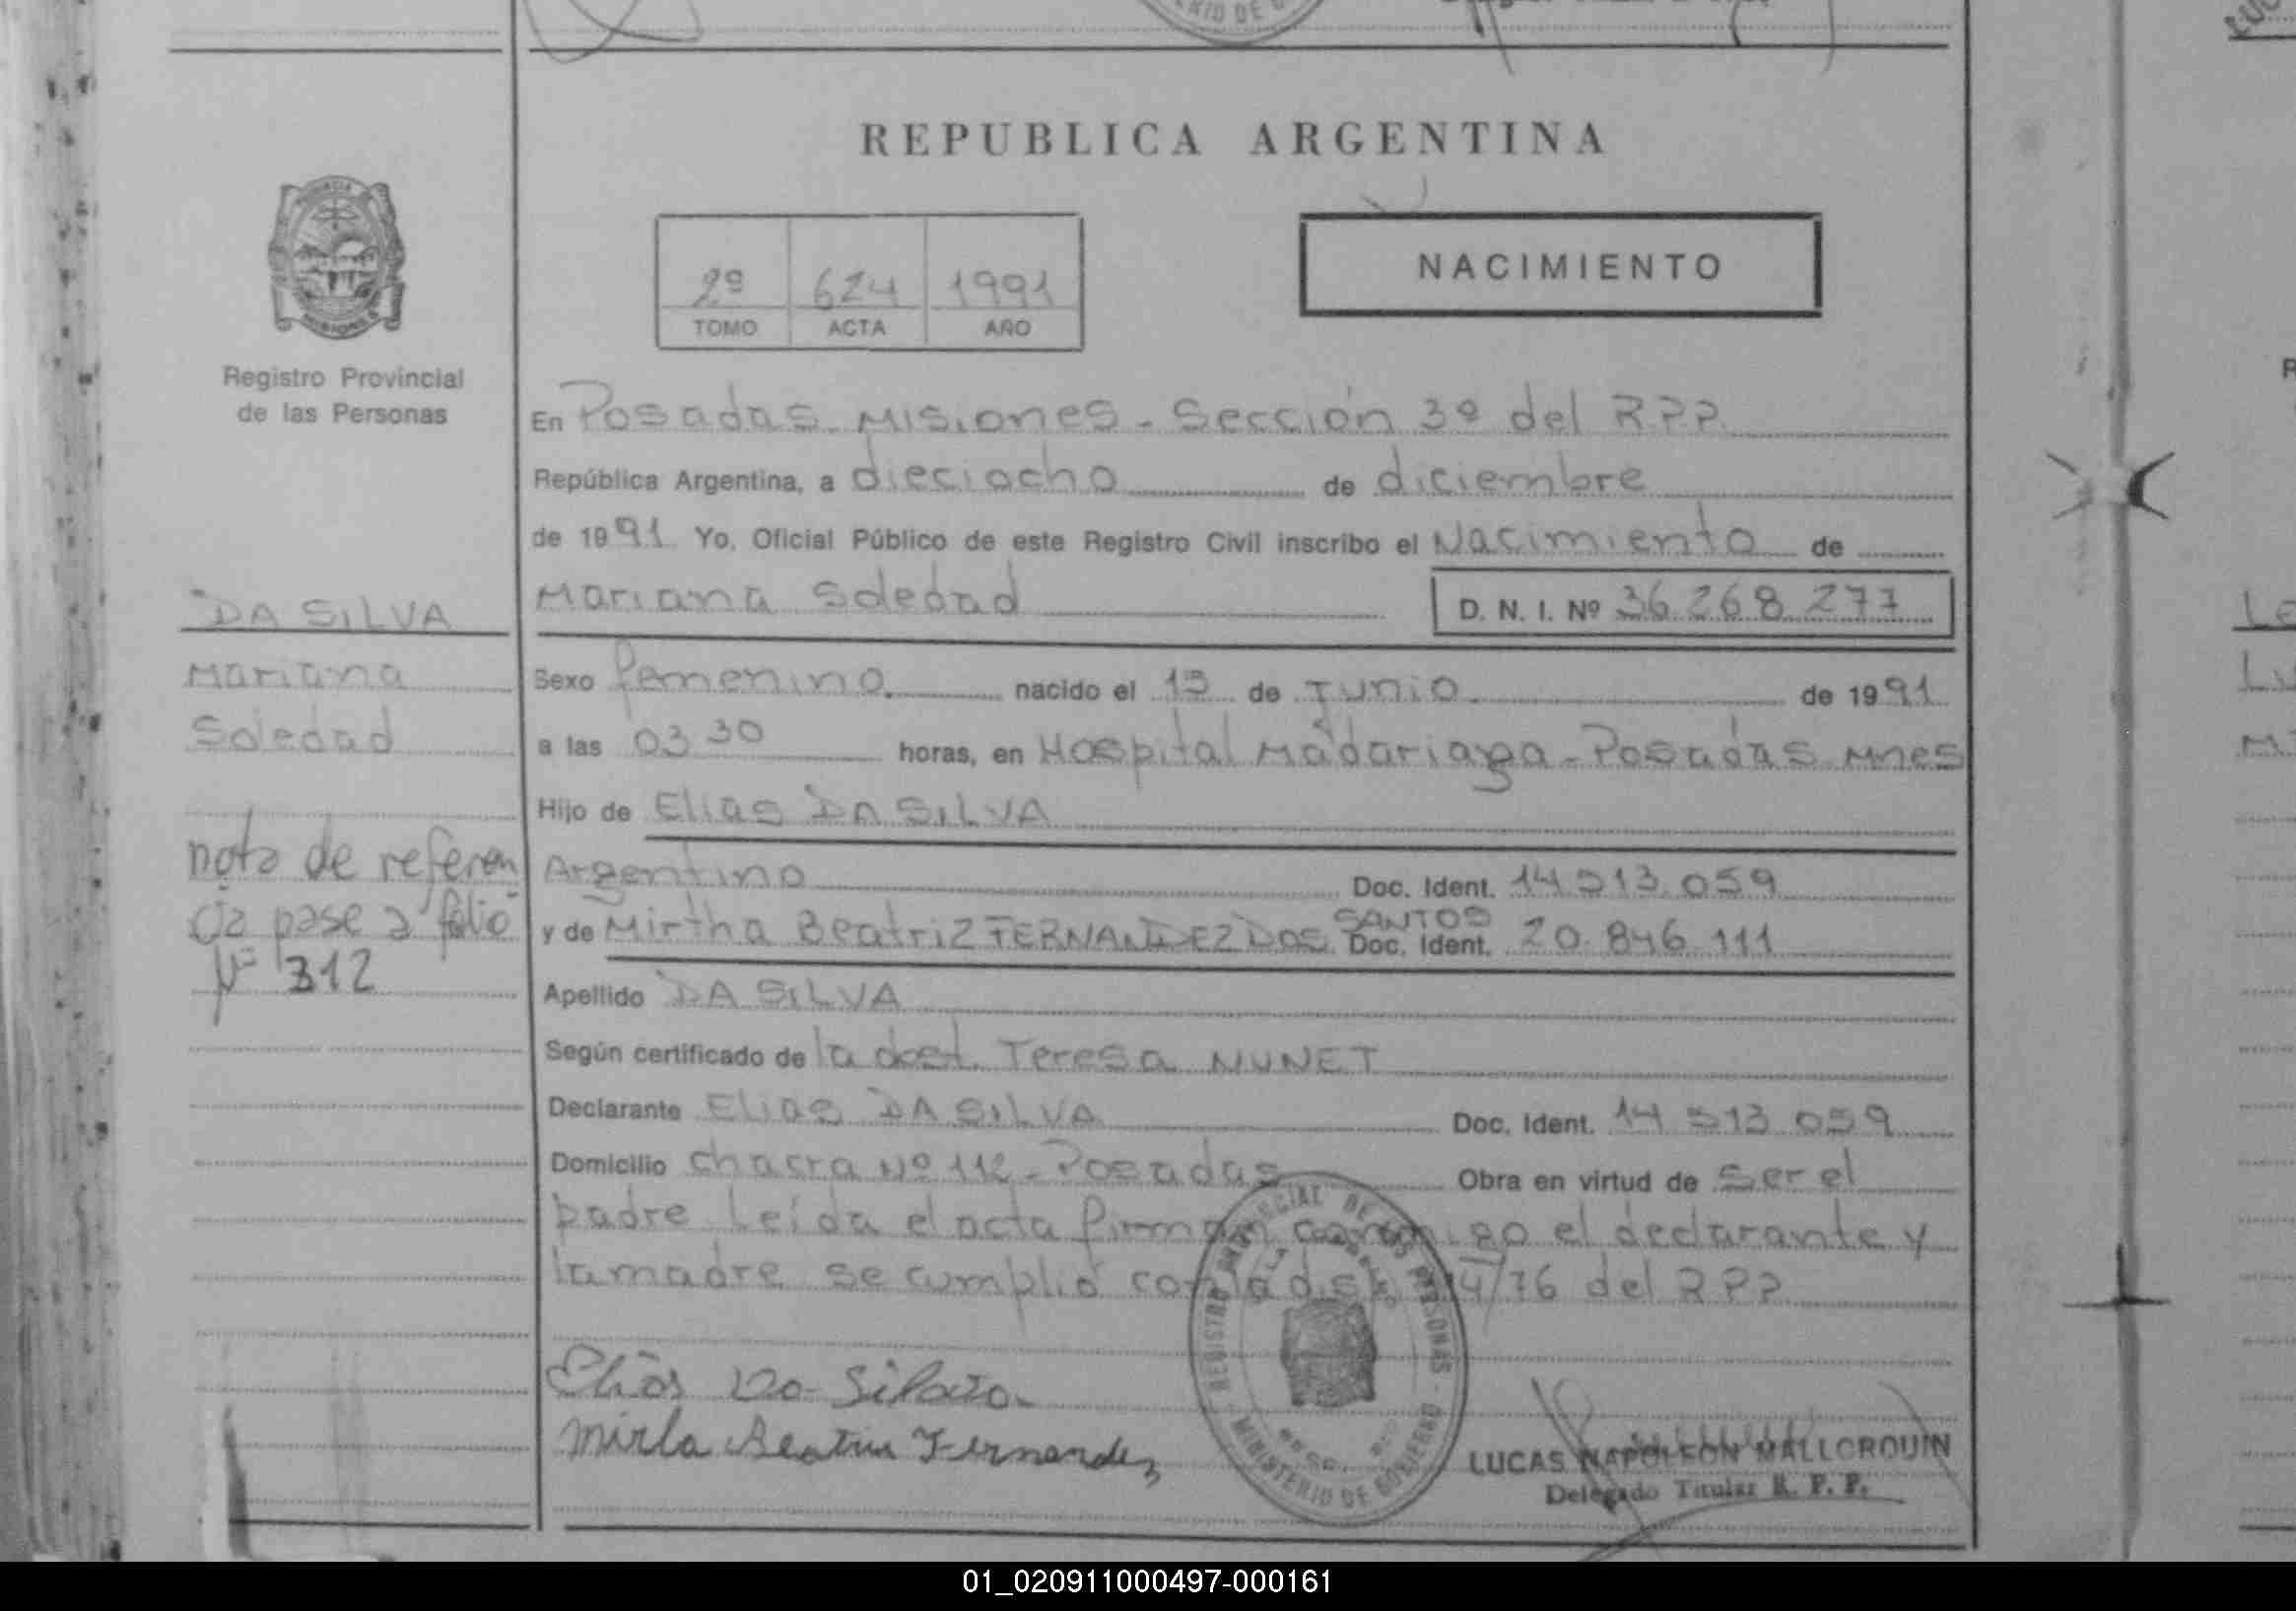 REPUBLICA ARGENTINA
2º 624 1991
TOMO ACTA AÑO
NACIMIENTO
Registro Provincial
de las Personas
En Posadas Misiones - Sección 3º del R.P.P.
República Argentina, a dieciocho de diciembre
de 1991 Yo, Oficial Público de este Registro Civil inscribo el Nacimiento de
Mariana Soledad D. N. I. Nº 36.268.277
DA SILVA
Mariana
Soledad
nota de referen
cia pase a folio
Nº 312
Sexo femenino nacido el 13 de Junio de 1991
a las 03 30 horas, en Hospital Madariaga - Posadas Mnes
Hijo de Elias DA SILVA
Argentino Doc. Ident. 14 513 059
y de Mirtha Beatriz FERNANDEZ DOS SANTOS Doc. Ident. 20.846.111
Apellido DA SILVA
Según certificado de la doct. Teresa NUNET
Declarante Elias DA SILVA Doc. Ident. 14 513 059
Domicilio chacra Nº 112 - Posadas Obra en virtud de ser el
padre Leída el acta firman conmigo el declarante y
la madre se cumplió con la disp. 14/76 del RPP
Elias Da Silva
Mirta Beatriz Fernandez
REGISTRO PROVINCIAL DE LAS PERSONAS
MINISTERIO DE GOBIERNO
LUCAS NAPOLEON MALLORQUIN
Delegado Titular R. P. P.
01_020911000497-000161